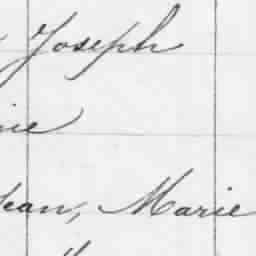 Joseph
Jean, Marie